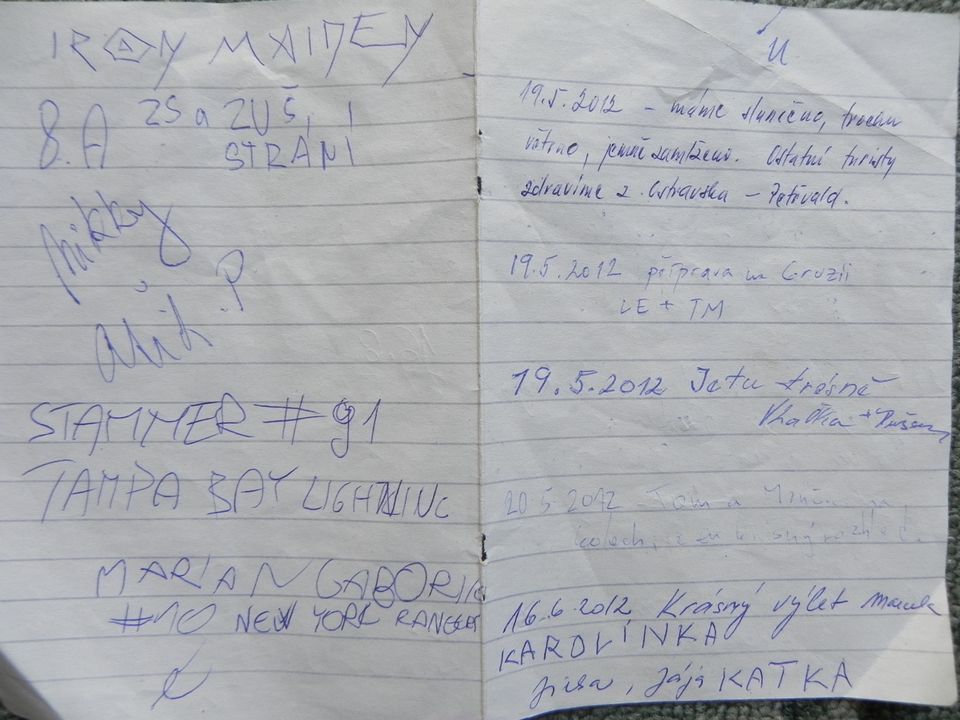 IRON MAIDEN
8.A ZŠ a ZUŠ,
STRÁNÍ
Nikky
STAMMER #91
TAMPA BAY LIGHTNING
MARIAN GABORIK
#10 NEW YORK RANGERS
19.5.2012 - máme slunečno, trochu
větrno, jemně zamlženo. Ostatní turisty
zdravíme z Ostravska - Petřvald.
19.5.2012 příprava na Gruzii
LE + TM
19.5.2012 Je tu krásně
Katka + Dušan
20.5.2012 - Tom a
kolech, je tu krásný rozhled.
16.6.2012 Krásný výlet
KAROLÍNKA
Jája KATKA